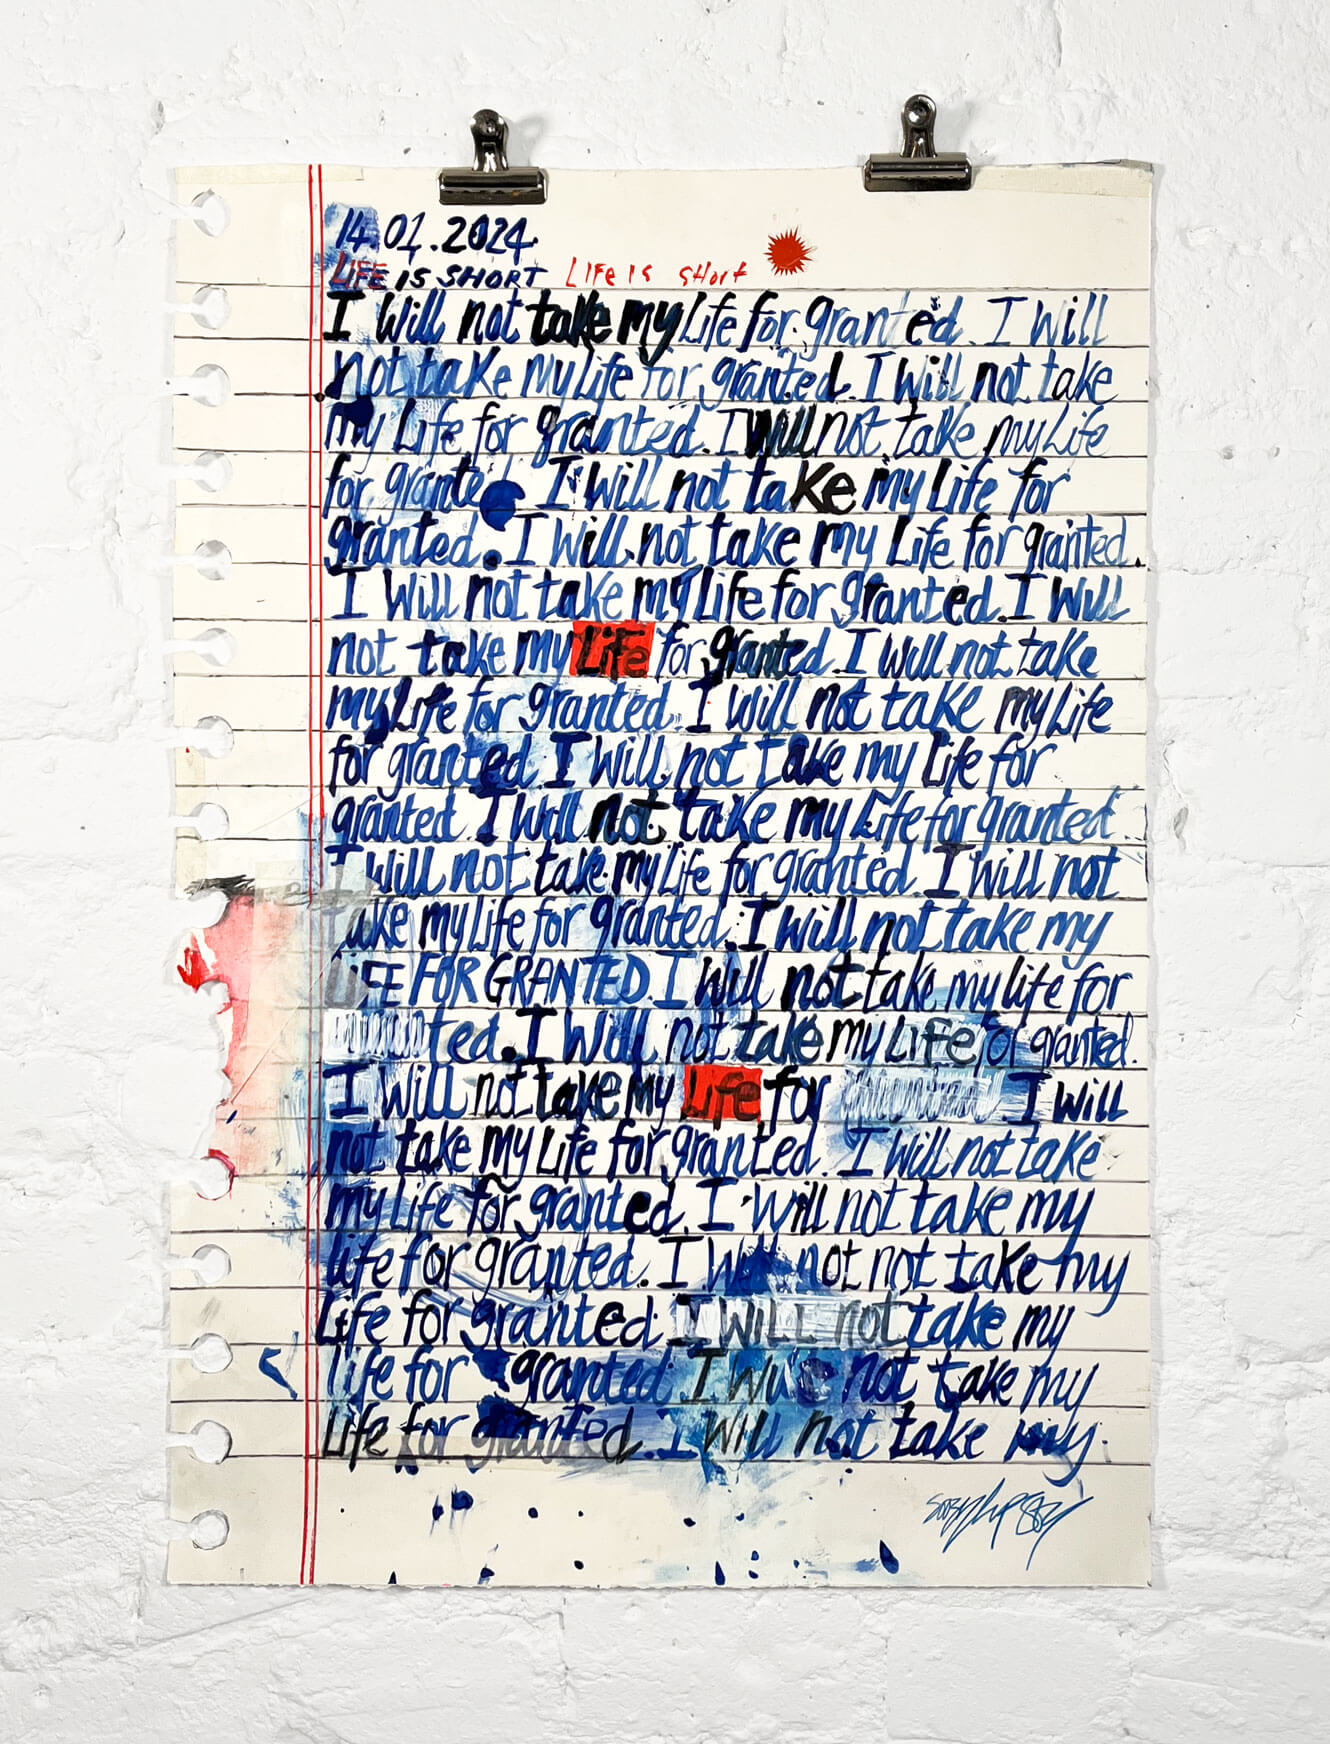 14.01.2024.
LIFE IS SHORT LIFE IS SHort
I Will not take my Life for granted. I Will
not take my Life for granted. I Will not take
my Life for granted. I Will not take my Life
for grante I Will not taKe my Life for
granted. I Will not take my Life for granted.
I Will not take my Life for granted. I Will
not take my LiFe for granted. I Will not take
my Life for granted. I Will not take my Life
for granted. I Will not take my Life for
granted. I Will not take my Life for granted.
I will not take my Life for granted. I Will not
take my Life for granted. I Will not take my
LIFE FOR GRANTED. I Will not take my life for
ted. I Will not take my LiFe for granted.
I Will not take my Life for I will
not take my Life for granted. I Will not take
my Life for granted. I will not take my
life for granted. I Will not not take my
Life for granted. I WiLL not take my
life for granted. I Will not take my
Life for granted. I Will not take my.